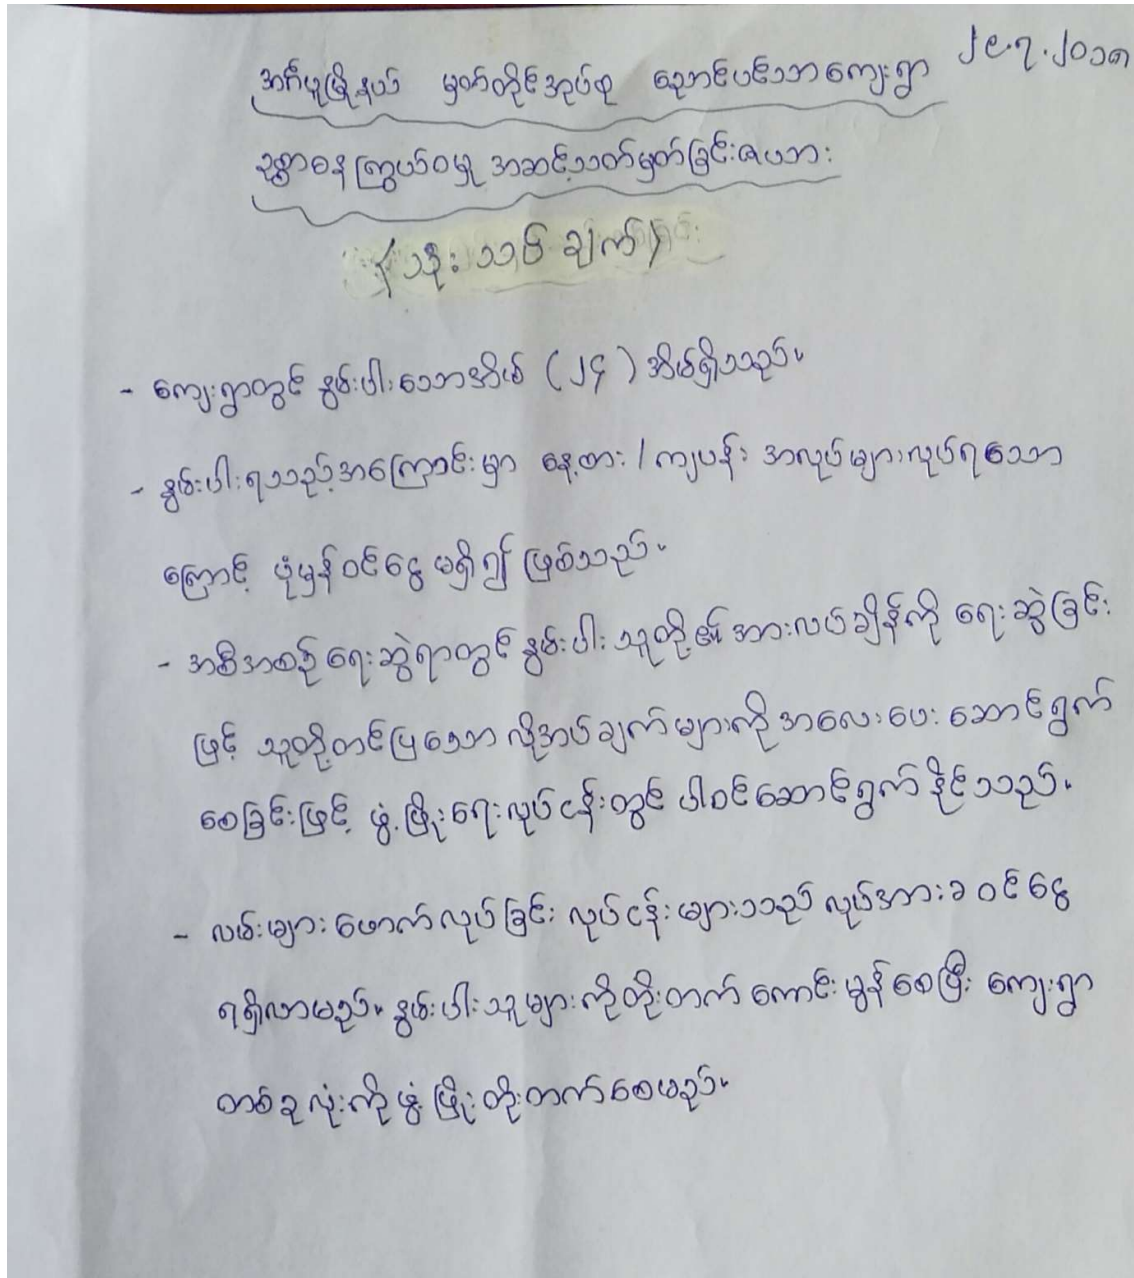 ၂၉.၇.၂၀၁၈
အင်္ဂပူမြို့နယ် မှတ်တိုင်အုပ်စု ညောင်ပင်သာကျေးရွာ
ဥစ္စာဓန ကြွယ်ဝမှု အဆင့်သတ်မှတ်ခြင်းဇယား
(သုံးသပ်ချက်)
- ကျေးရွာတွင် နွမ်းပါးသောအိမ် (၂၄) အိမ်ရှိသည်။
- နွမ်းပါးရသည့်အကြောင်းမှာ နေ့စား / ကျပန်း အလုပ်များလုပ်ရသော
ကြောင့် ပုံမှန်ဝင်ငွေ မရှိ၍ ဖြစ်သည်။
- အစီအစဉ်ရေးဆွဲရာတွင် နွမ်းပါးသူတို့၏ အားလပ်ချိန်ကို ရေးဆွဲခြင်း
ဖြင့် သူတို့တင်ပြသော လိုအပ်ချက်များကို အလေးပေး ဆောင်ရွက်
စေခြင်းဖြင့် ဖွံ့ဖြိုးရေးလုပ်ငန်းတွင် ပါဝင်ဆောင်ရွက်နိုင်သည်။
- လမ်းများဖောက်လုပ်ခြင်း လုပ်ငန်းများသည် လုပ်အားခ ဝင်ငွေ
ရရှိလာမည်။ နွမ်းပါးသူများကိုတိုးတက်ကောင်းမွန်စေပြီး ကျေးရွာ
တစ်ခုလုံးကို ဖွံ့ဖြိုးတိုးတက်စေမည်။